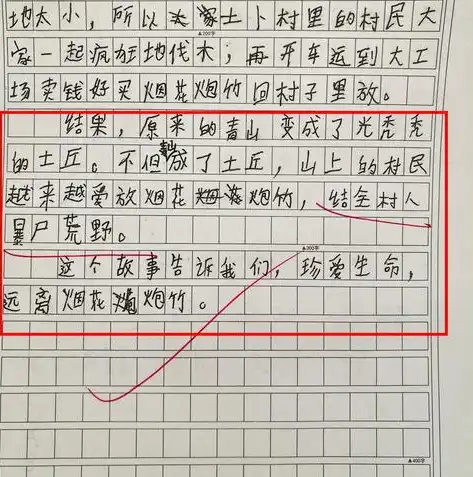 地太小，所以土卜村里的村民大
▲200字
家一起疯狂地伐木，再开车运到大工
场卖钱好买烟花炮竹回村子里放。
结果，原来的青山变成了光秃秃
的土丘。不但成了土丘，山上的村民
越来越爱放烟花炮竹，结全村人
暴尸荒野。
▲300字
这个故事告诉我们，珍爱生命，
远离烟花炮竹。
▲400字